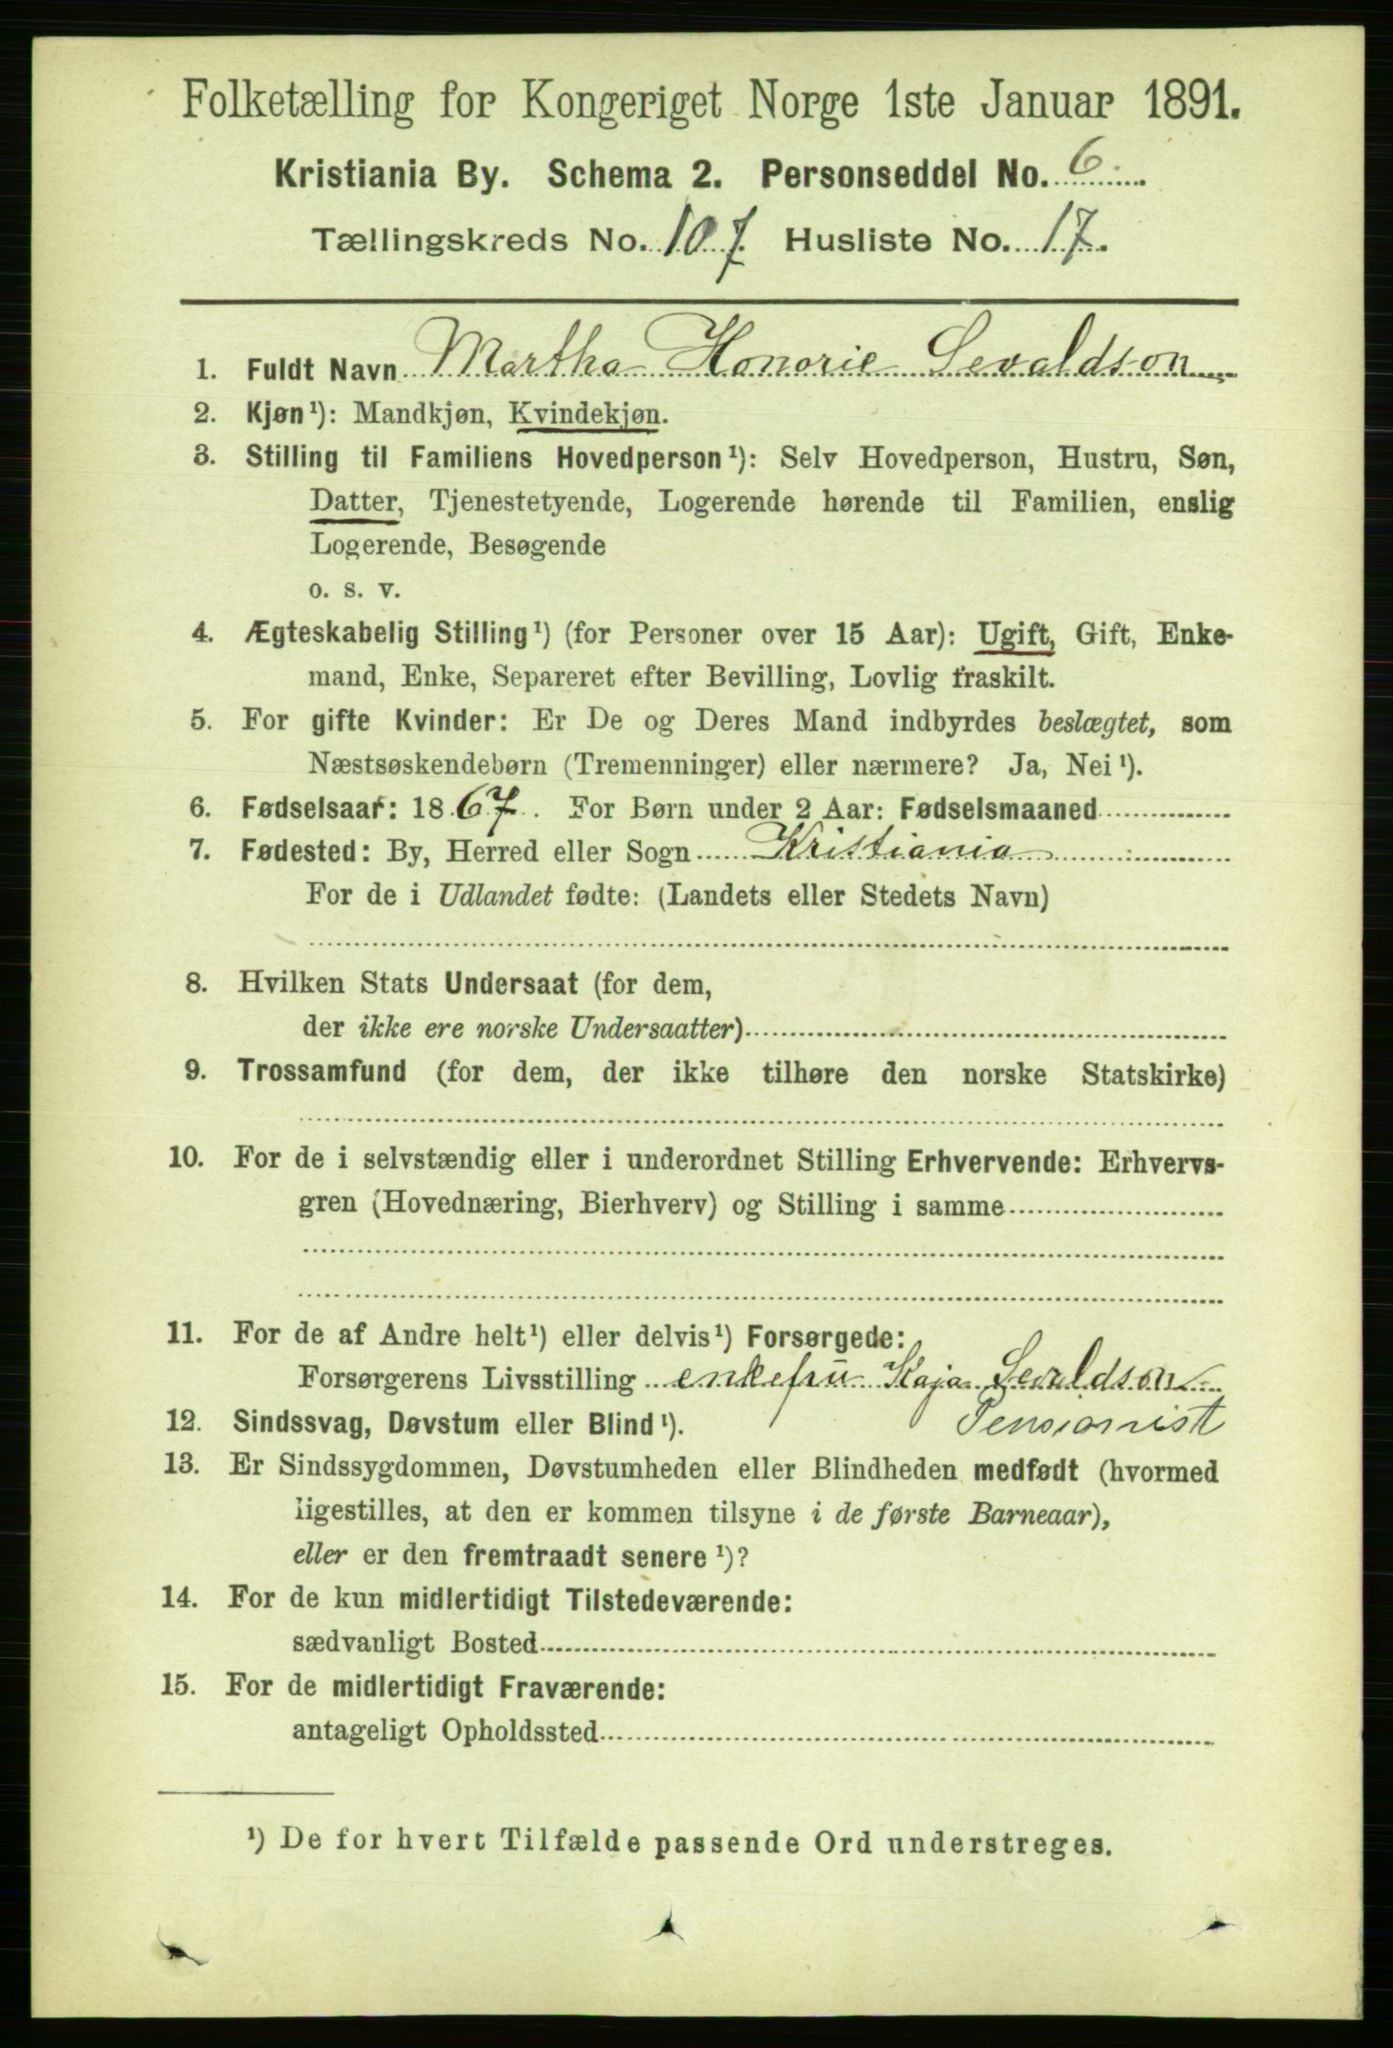 Folketælling for Kongeriget Norge 1ste Januar 1891.
Kristiania By. Schema 2. Personseddel No. 6
Tællingskreds No. 107. Husliste No. 17.
1. Fuldt Navn Martha Honorie Sevaldson
2. Kjøn¹): Mandkjøn, Kvindekjøn.
3. Stilling til Familiens Hovedperson¹): Selv Hovedperson, Hustru, Søn,
Datter, Tjenestetyende, Logerende hørende til Familien, enslig
Logerende, Besøgende
o. s. v.
4. Ægteskabelig Stilling¹) (for Personer over 15 Aar): Ugift, Gift, Enke-
mand, Enke, Separeret efter Bevilling, Lovlig fraskilt.
5. For gifte Kvinder: Er De og Deres Mand indbyrdes beslægtet, som
Næstsøskendebørn (Tremenninger) eller nærmere? Ja, Nei¹).
6. Fødselsaar: 1867. For Børn under 2 Aar: Fødselsmaaned
7. Fødested: By, Herred eller Sogn Kristiania
For de i Udlandet fødte: (Landets eller Stedets Navn)
8. Hvilken Stats Undersaat (for dem,
der ikke ere norske Undersaatter)
9. Trossamfund (for dem, der ikke tilhøre den norske Statskirke)
10. For de i selvstændig eller i underordnet Stilling Erhvervende: Erhvervs-
gren (Hovednæring, Bierhverv) og Stilling i samme
11. For de af Andre helt¹) eller delvis¹) Forsørgede:
Forsørgerens Livsstilling enkefru Kaja Sevaldson
12. Sindssvag, Døvstum eller Blind¹). Pensionist
13. Er Sindssygdommen, Døvstumheden eller Blindheden medfødt (hvormed
ligestilles, at den er kommen tilsyne i de første Barneaar),
eller er den fremtraadt senere¹)?
14. For de kun midlertidigt Tilstedeværende:
sædvanligt Bosted
15. For de midlertidigt Fraværende:
antageligt Opholdssted
¹) De for hvert Tilfælde passende Ord understreges.